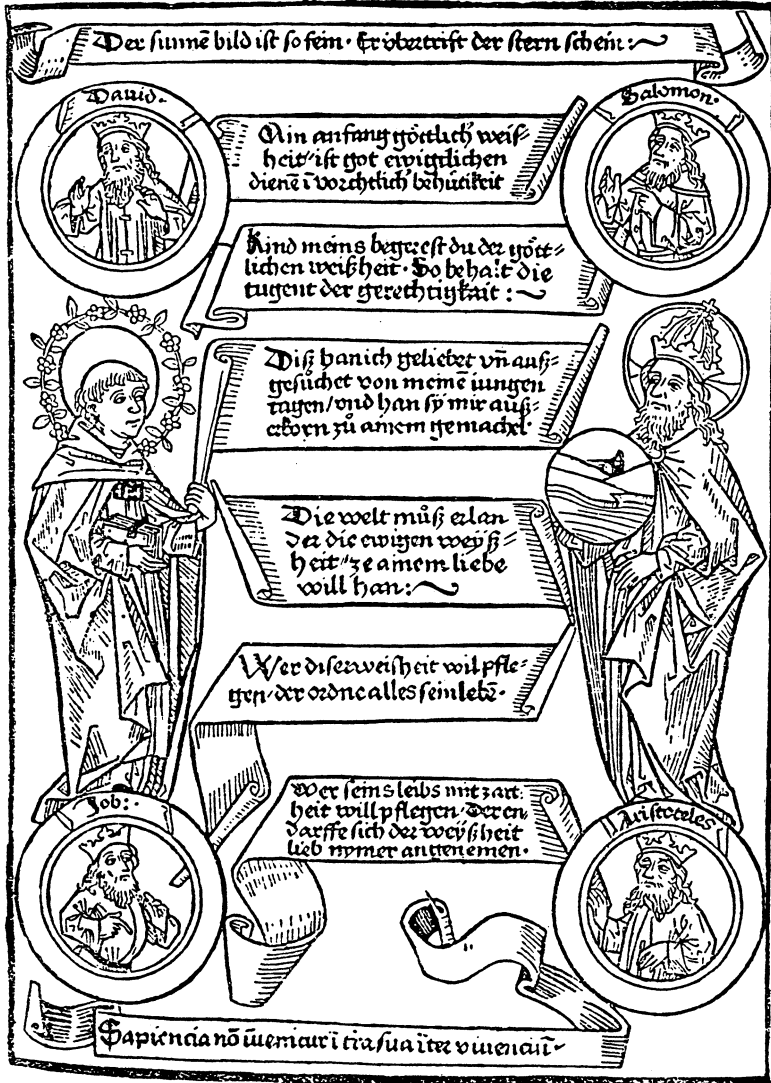 Der sunnē bild ist so fein · Er übertrift der stern schein :~
Dauid ·
Salomon ·
Ain anfang götlich weis=
heit / ist got ewigklichen
dienē ī vorchtlich behůtikeit
Kind meins begerest du der gött=
lichen weißheit · So behalt die
tugent der gerechtigkait :~
Diß han ich geliebet vn̄ auß=
gesůchet von meinē iungen
tagen / vnd han sy mir auß=
erkorn zů ainem gemachel ·
Die welt můß erlan
der die ewigen weyß=
heit / ze ainem liebe
will han :~
Wer diser weisheit wil pfle=
gen / der ordne alles sein lebē ·
Wer seins leibs mit zart
heit will pflegen / Der en
darffe sich der weyßheit
lieb nymer angenemen ·
Job : ·
Aristoteles
Sapiencia nō īuenitur ī t̄ra sua īter viuenciū ~